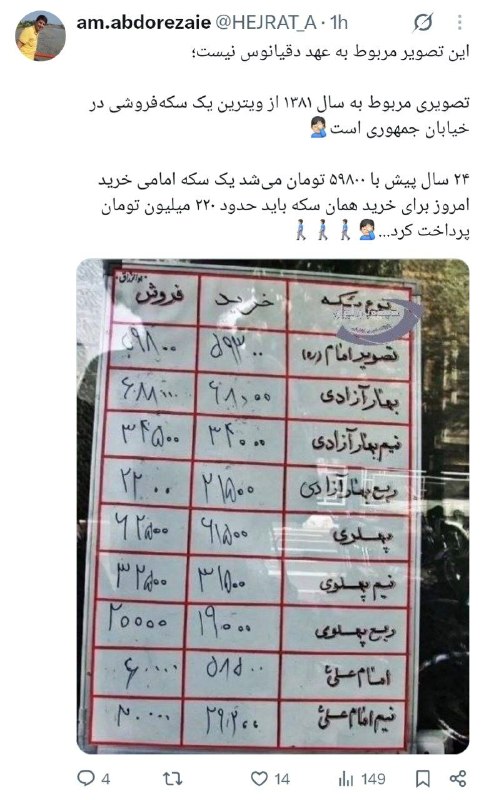 am.abdorezaie @HEJRAT_A · 1h
این تصویر مربوط به عهد دقیانوس نیست؛
تصویری مربوط به سال ۱۳۸۱ از ویترین یک سکه‌فروشی در
خیابان جمهوری است🤦🏻‍♂️
۲۴ سال پیش با ۵۹۸۰۰ تومان می‌شد یک سکه امامی خرید
امروز برای خرید همان سکه باید حدود ۲۲۰ میلیون تومان
پرداخت کرد...🤦🏻‍♂️🚶🏻‍♂️🚶🏻‍♂️🚶🏻‍♂️
نوع سکه خرید فروش
تصویر امام (ره) ۵۹۳۰۰ ۵۹۸۰۰
بهار آزادی
نیم بهار آزادی ۳۴۰۰۰ ۳۴۵۰۰
ربع بهار آزادی ۲۱۵۰۰
پهلوی ۶۱۵۰۰ ۶۲۵۰۰
نیم پهلوی ۳۱۵۰۰ ۳۲۵۰۰
ربع پهلوی ۱۹۰۰۰ ۲۰۰۰۰
امام علی ۵۸۵۰۰ ۶۰۰۰۰
نیم امام علی ۲۹۲۰۰ ۳۰۰۰۰
4 14 149